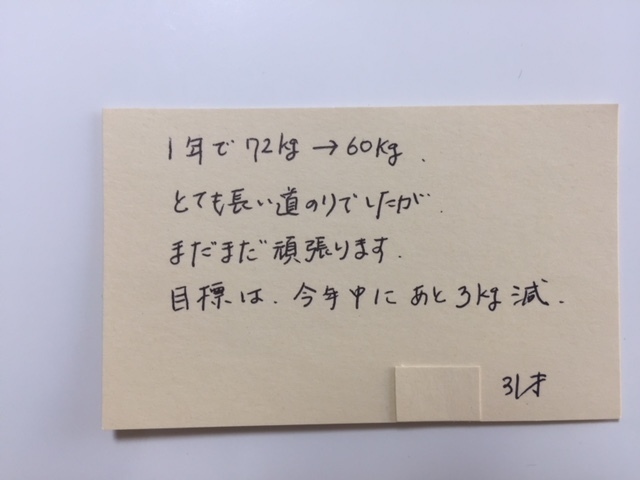 1年で72kg→60kg.
とても長い道のりでしたが.
まだまだ頑張ります.
目標は.今年中にあと3kg減.
31才